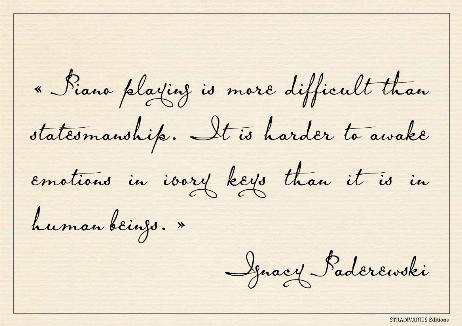 « Piano playing is more difficult than
statesmanship. It is harder to awake
emotions in ivory keys than it is in
human beings. »
Ignacy Paderewski
STRADIVARIUS Editions